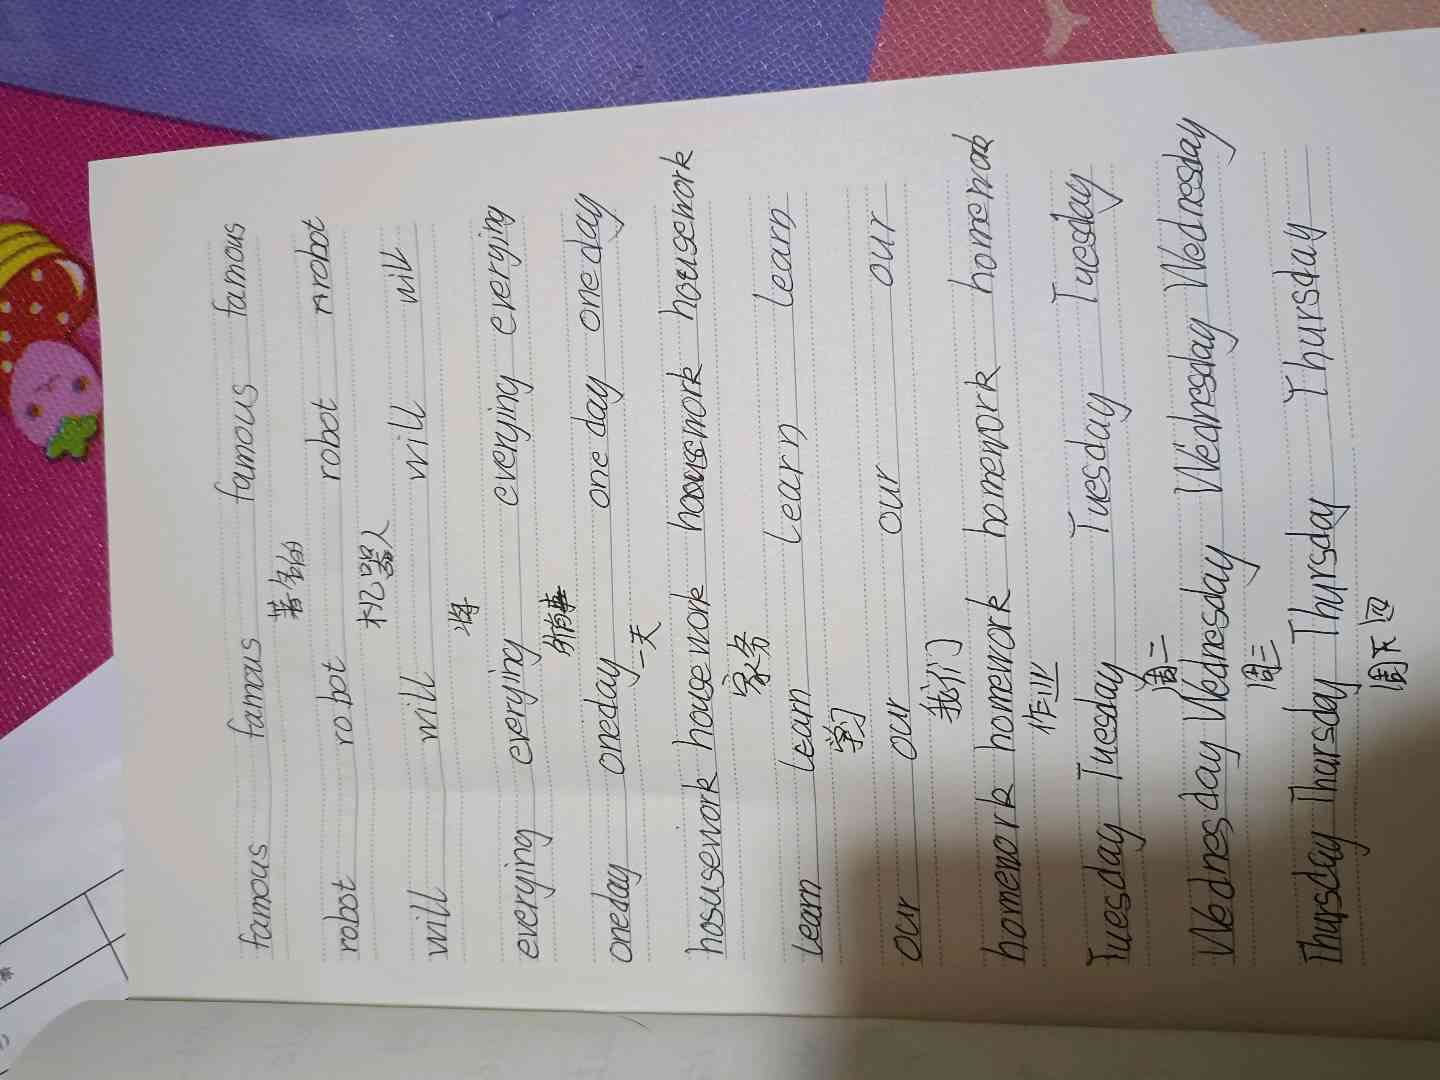 famous famous famous famous
著名的
robot robot robot rrobot
机器人
will will will will
将
everying everying everying everying
oneday oneday one day one day
一天
hosusework housework housework housework
家务
learn learn learn learn
学习
our our our our
我们
homework homework homework homework
作业
Tuesday Tuesday Tuesday Tuesday
周二
Wednesday Wednesday Wednesday Wednesday
周三
Thursday Thursday Thursday Thursday
周天四